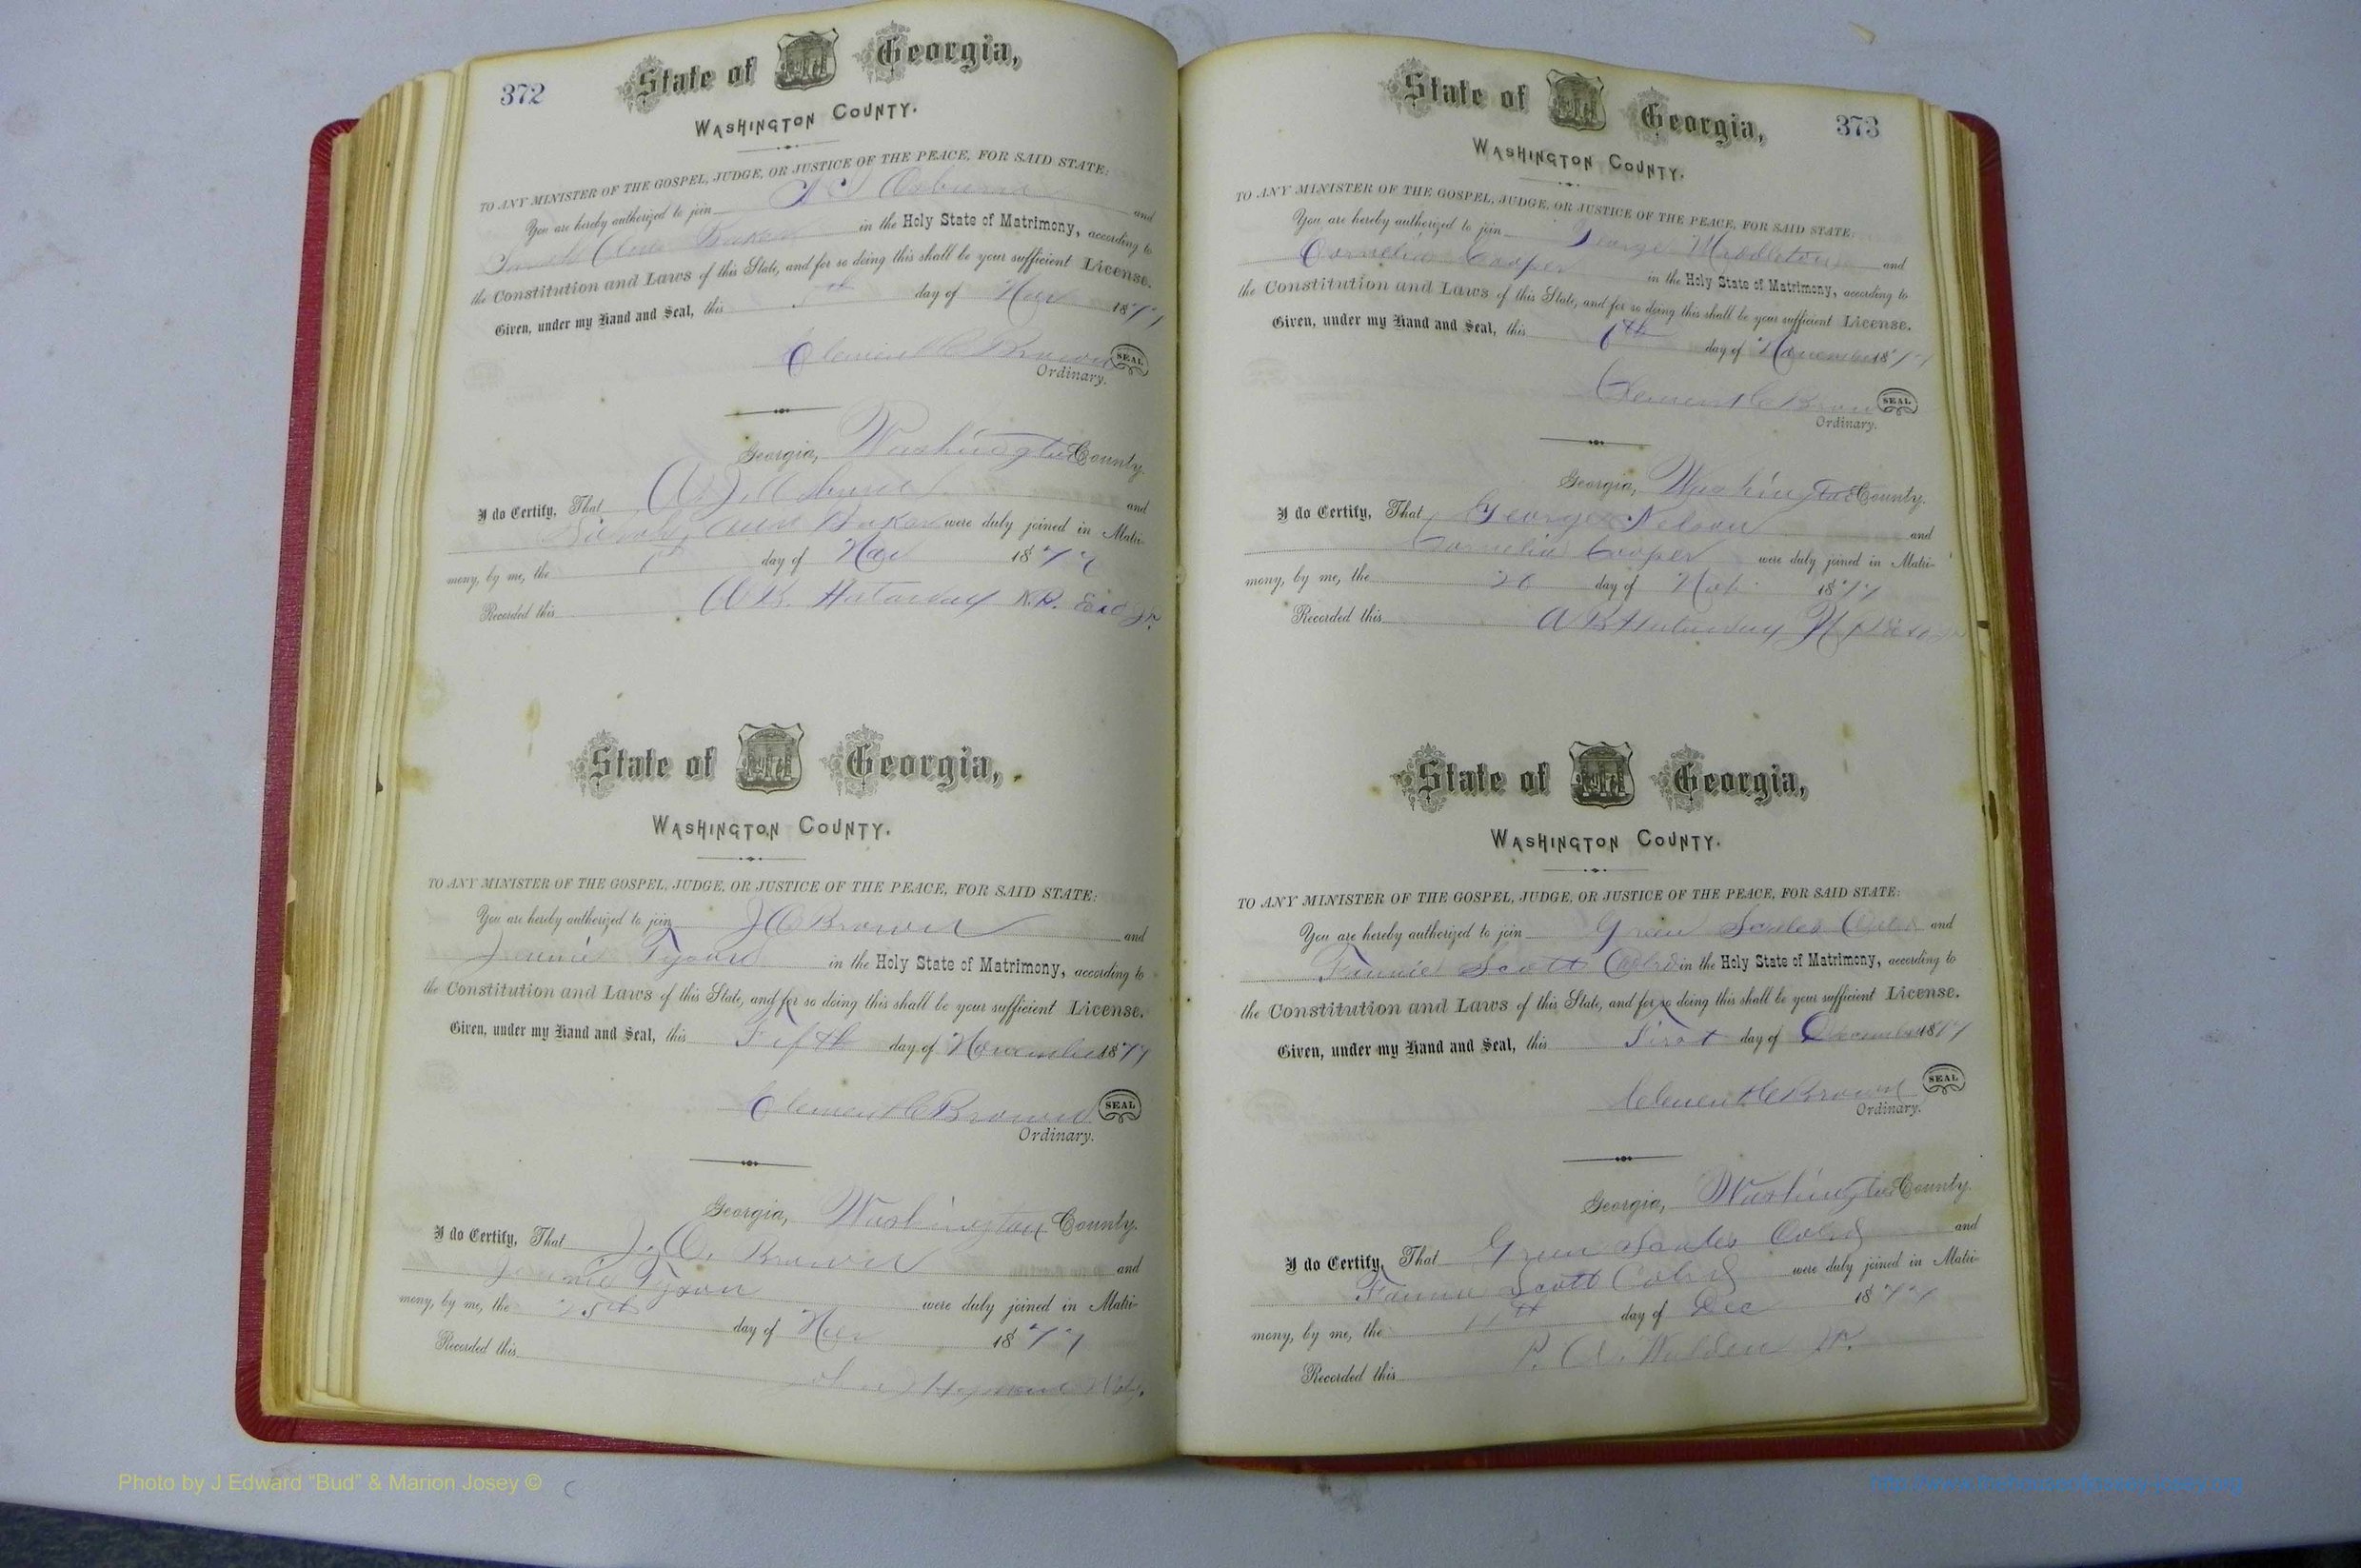 372
State of Georgia,
WASHINGTON COUNTY.
TO ANY MINISTER OF THE GOSPEL, JUDGE, OR JUSTICE OF THE PEACE, FOR SAID STATE:
You are hereby authorized to join and
in the Holy State of Matrimony, according to
the Constitution and Laws of this State, and for so doing this shall be your sufficient License.
Given, under my Hand and Seal, this 5th day of Nov 1877
Clement C Brown SEAL
Ordinary.
Georgia, Washington County.
I do Certify, That and
Sarah Ann Baker were duly joined in Matri-
mony, by me, the day of Nov 1877
Recorded this
State of Georgia,
WASHINGTON COUNTY.
TO ANY MINISTER OF THE GOSPEL, JUDGE, OR JUSTICE OF THE PEACE, FOR SAID STATE:
You are hereby authorized to join J C Brown and
Jennie Tyson in the Holy State of Matrimony, according to
the Constitution and Laws of this State, and for so doing this shall be your sufficient License.
Given, under my Hand and Seal, this Fifth day of November 1877
Clement C Brown SEAL
Ordinary.
Georgia, Washington County.
I do Certify, That J. C. Brown and
Jennie Tyson were duly joined in Matri-
mony, by me, the day of Nov 1877
Recorded this
373
State of Georgia,
WASHINGTON COUNTY.
TO ANY MINISTER OF THE GOSPEL, JUDGE, OR JUSTICE OF THE PEACE, FOR SAID STATE:
You are hereby authorized to join George Middleton and
Cornelia Cooper in the Holy State of Matrimony, according to
the Constitution and Laws of this State, and for so doing this shall be your sufficient License.
Given, under my Hand and Seal, this day of November 1877
Clement C Brown SEAL
Ordinary.
Georgia, Washington County.
I do Certify, That George Nelson and
Cornelia Cooper were duly joined in Matri-
mony, by me, the day of 1877
Recorded this
State of Georgia,
WASHINGTON COUNTY.
TO ANY MINISTER OF THE GOSPEL, JUDGE, OR JUSTICE OF THE PEACE, FOR SAID STATE:
You are hereby authorized to join Green and
Fannie Scott Colrd in the Holy State of Matrimony, according to
the Constitution and Laws of this State, and for so doing this shall be your sufficient License.
Given, under my Hand and Seal, this First day of December 1877
Clement C Brown SEAL
Ordinary.
Georgia, Washington County.
I do Certify, That Green Colrd and
Fannie Scott Colrd were duly joined in Matri-
mony, by me, the day of Dec 1877
Recorded this
Photo by J Edward "Bud" & Marion Josey ©